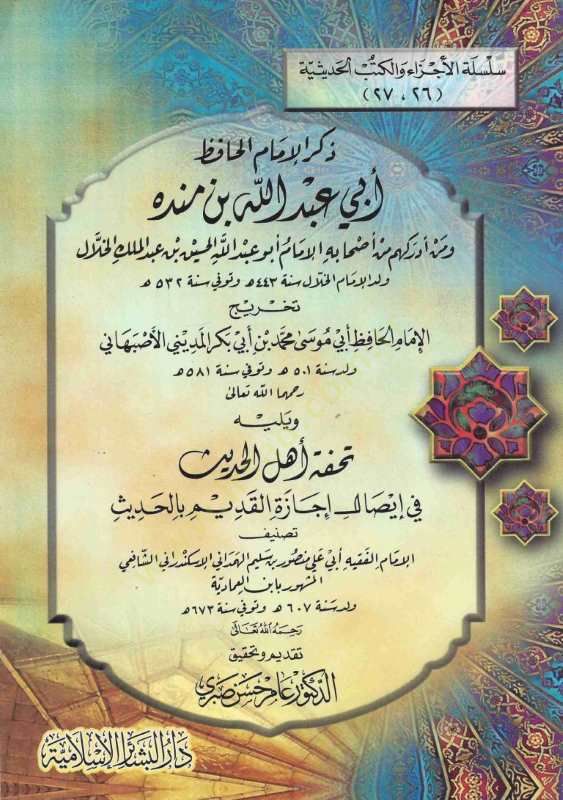 سلسلة الأجزاء والكتب الحديثية
(٢٦ ، ٢٧)
ذكر الإمام الحافظ
أبي عبد الله بن منده
ومن أدركهم من أصحابه الإمام أبو عبد الله الحسين بن عبد الملك الخلال
ولد الإمام الخلال سنة ٤٤٣ هـ وتوفي سنة ٥٣٢ هـ
تخريج
الإمام الحافظ أبي موسى محمد بن أبي بكر المديني الأصبهاني
ولد سنة ٥٠١ هـ وتوفي سنة ٥٨١ هـ
رحمهما الله تعالى
ويليه
تحفة أهل الحديث
في إيصال إجازة القديم بالحديث
تصنيف
الإمام الفقيه أبي علي منصور بن سليم الهمداني الإسكندراني الشافعي
المشهور بابن العمادية
ولد سنة ٦٠٧ هـ وتوفي سنة ٦٧٣ هـ
رحمه الله تعالى
تقديم وتحقيق
الدكتور عامر حسن صبري
دار البشائر الإسلامية